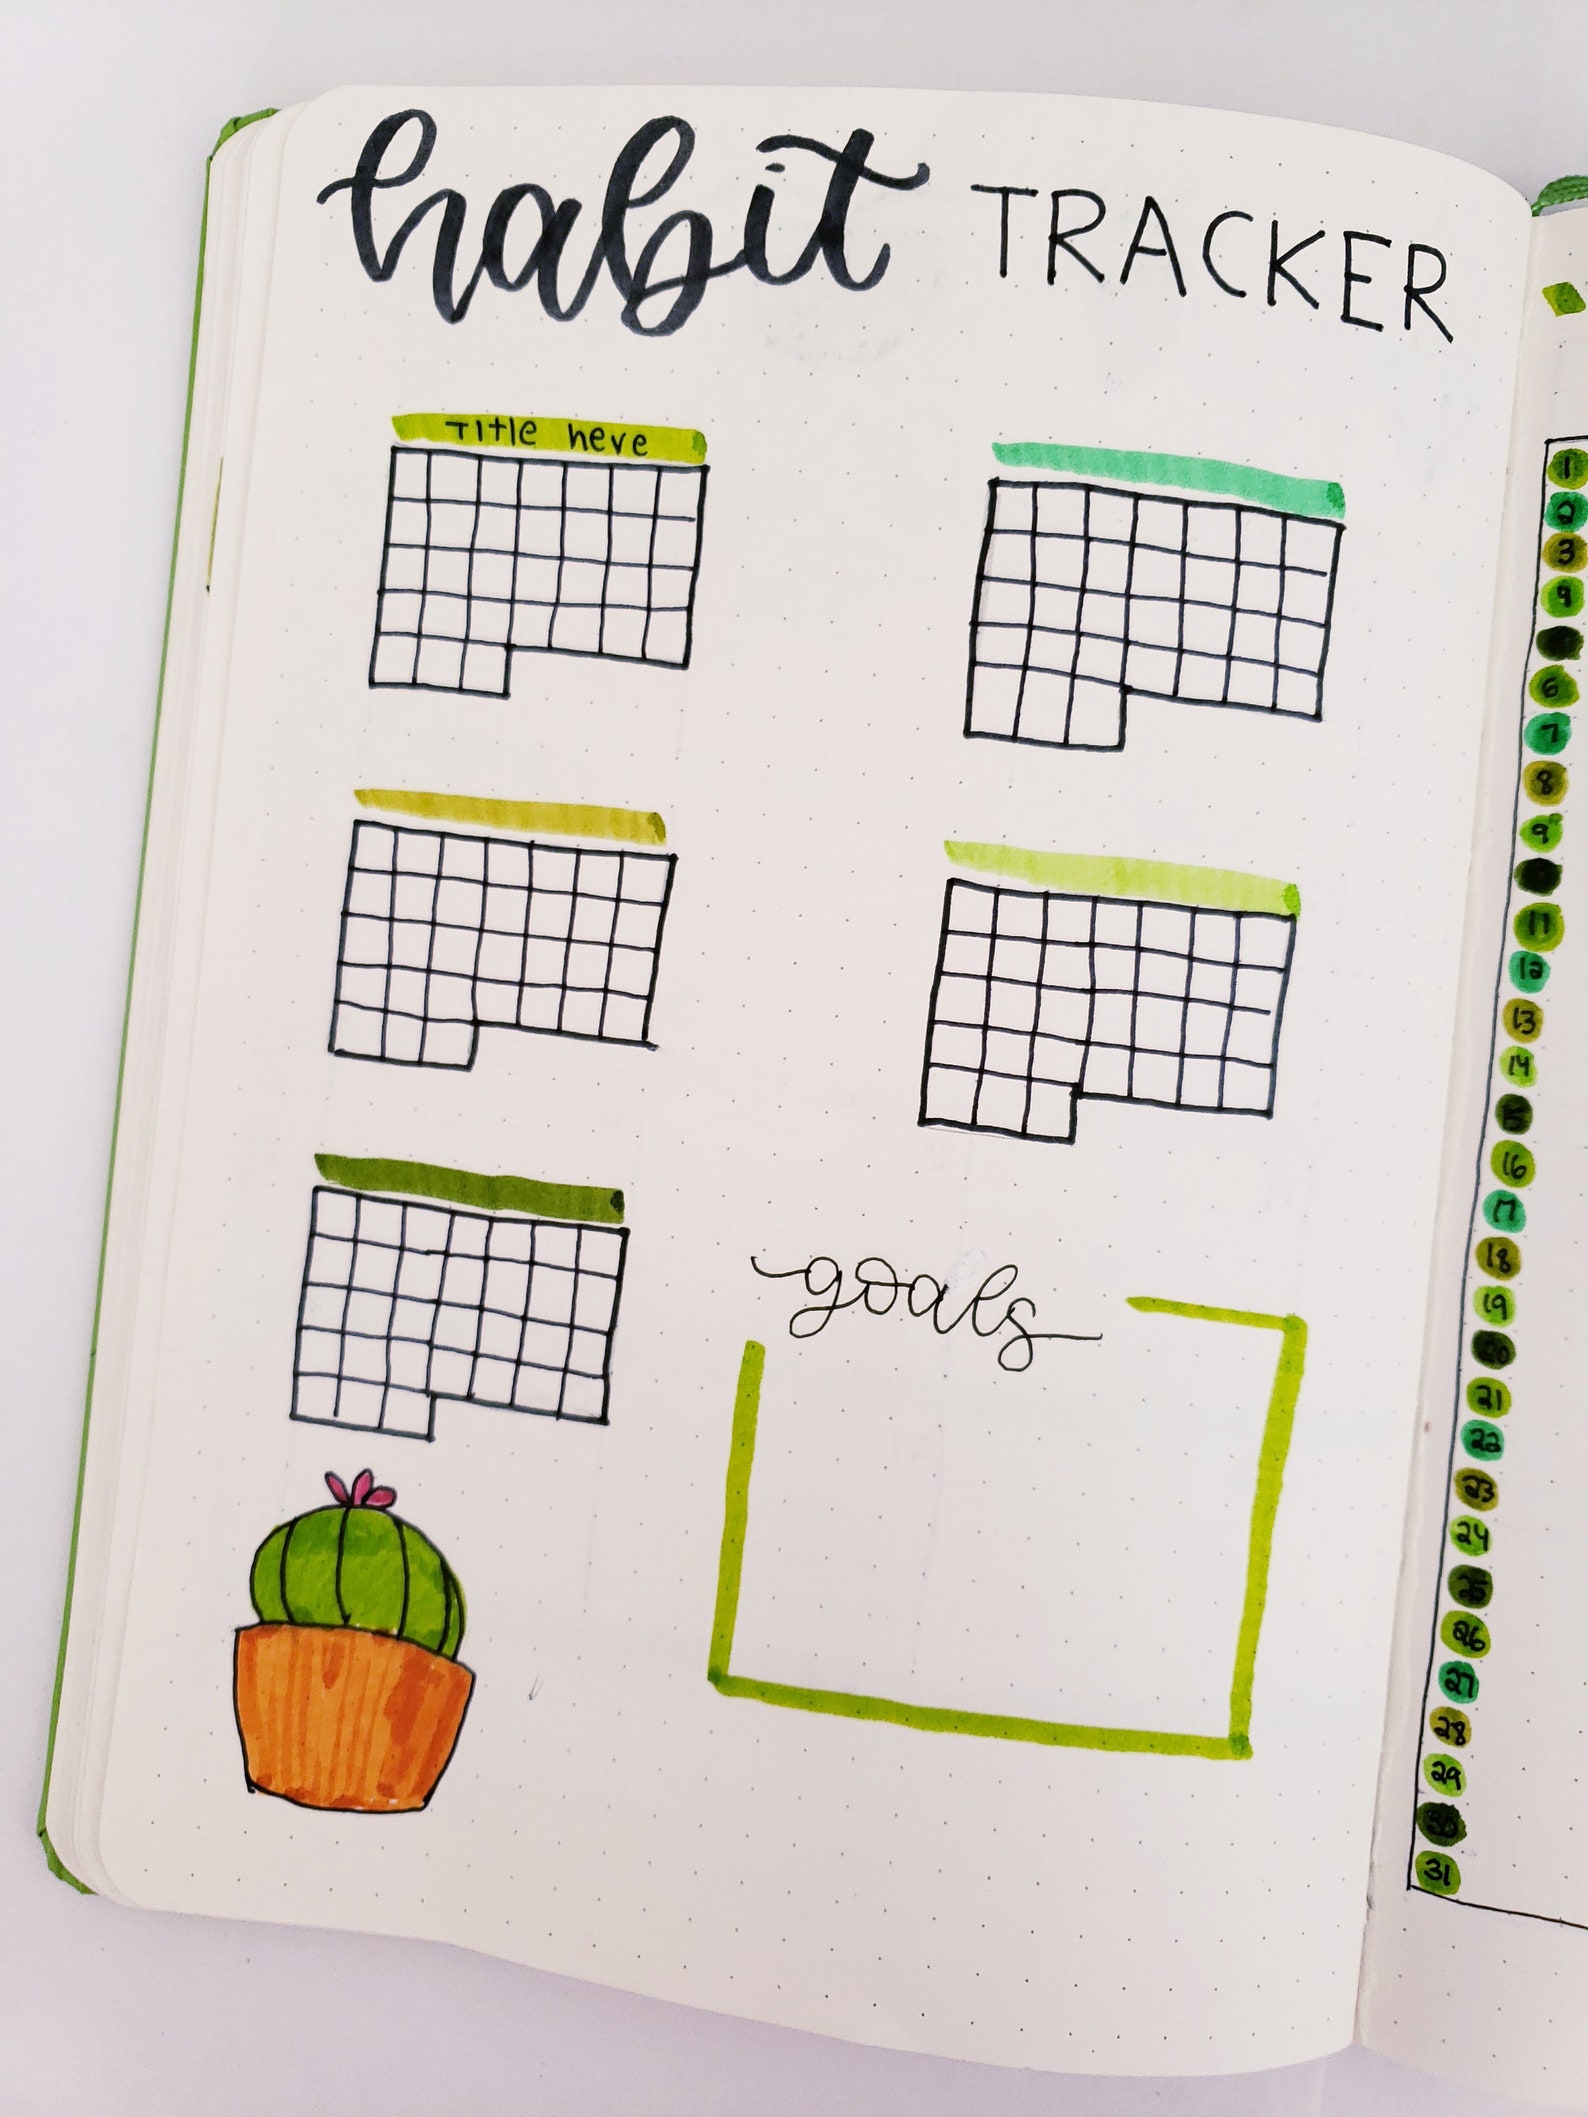 habit TRACKER
Title here
goals
1
2
3
4
6
7
8
9
11
12
13
14
15
16
17
18
19
20
21
22
23
24
25
26
27
28
29
30
31